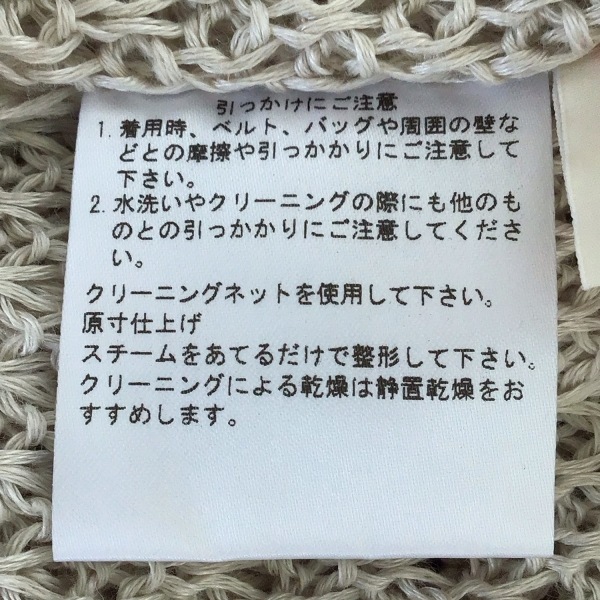 引っかけにご注意
1. 着用時、ベルト、バッグや周囲の壁な
どとの摩擦や引っかかりにご注意して
下さい。
2. 水洗いやクリーニングの際にも他のも
のとの引っかかりにご注意してくださ
い。
クリーニングネットを使用して下さい。
原寸仕上げ
スチームをあてるだけで整形して下さい。
クリーニングによる乾燥は静置乾燥をお
すすめします。